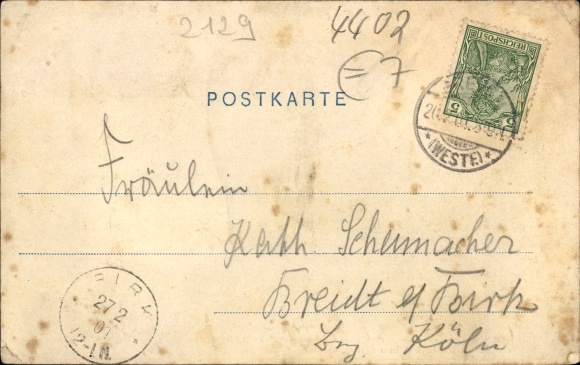 2129
4402
= 7
REICHSPOST
5 5
POSTKARTE
*(WESTF.)*
Fräulein
Kath. Schumacher
Breidt b/ Birk
Bez. Köln
BIRK
27 2
01
12-1N.